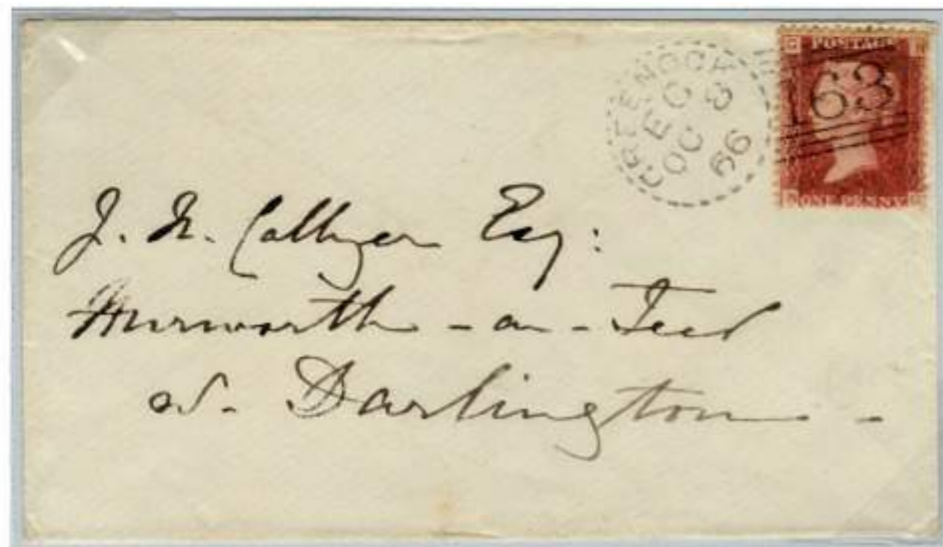 GREENOCK
EC
OC 6
66
POSTAGE
163
ONE PENNY
J. N. Collyer Esq:
Hurworth-on-Tees
Darlington -